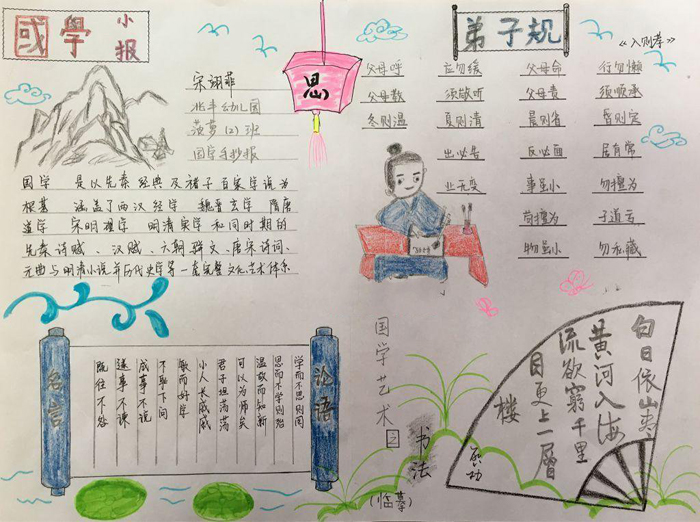 國學小报
宋翊菲
幼儿园
菠萝(2)班
国学手抄报
国学 是以先秦经典及诸子百家学说为
根基 涵盖了两汉经学 魏晋玄学 隋唐
道学 宋明理学 明清实学和同时期的
先秦诗赋、汉赋、六朝骈文、唐宋诗词、
元曲与明清小说并历代史学等一套完整文化、艺术体系
思
弟子规
《入则孝》
父母呼 应勿缓 父母命 行勿懒
父母教 须敬听 父母责 须顺承
冬则温 夏则清 晨则省 昏则定
出必告 反必面 居有常
业无变 事虽小 勿擅为
苟擅为 子道亏
物虽小 勿私藏
论语
学而不思则罔
思而不学则殆
温故而知新
可以为师矣
君子坦荡荡
小人长戚戚
敏而好学
不耻下问
成事不说
遂事不谏
既往不咎
名言
国学艺术之
书法
(临摹)
白日依山尽
黄河入海
流欲窮千里
目更上一層
樓
启功